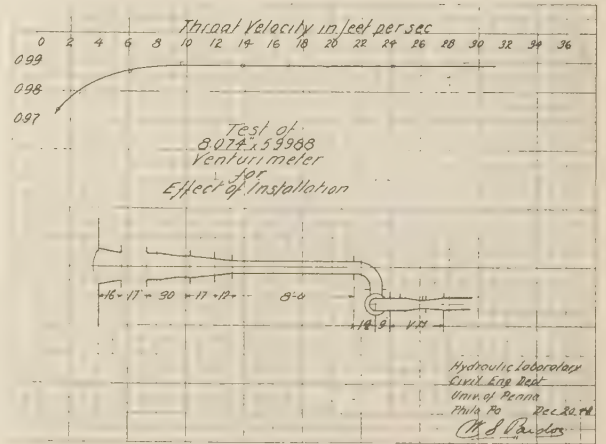 Throat Velocity in feet per sec
0 2 4 6 8 10 12 14 16 18 20 22 24 26 28 30 32 34 36
0.99
0.98
0.97
Test of
8.074" x 5.9988
Venturi meter
for
Effect of Installation
16 17 30 17 12 8'-0
14 9 V.M
Hydraulic Laboratory
Civil Eng Dept
Univ. of Penna
Phila Pa Dec 20
W S Pardoe